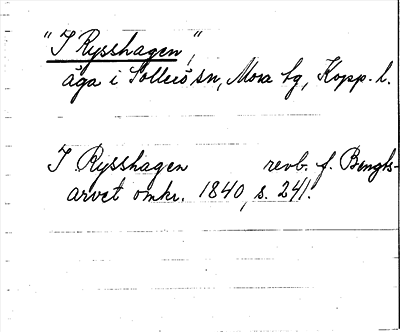 "I Rysshagen",
äga i Sollerö sn, Mora tg, Kopp. l.
I Rysshagen revb. f. Bengts-
arvet omkr. 1840, s. 241.